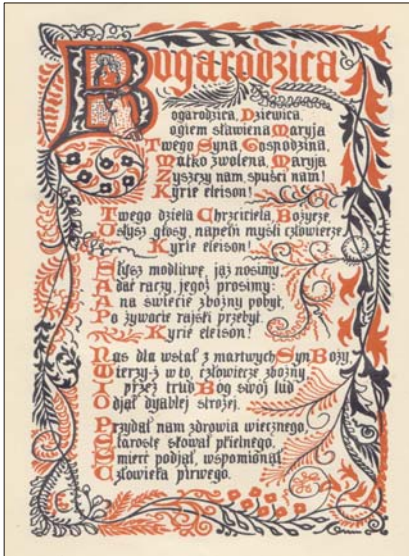 Bogarodzica
ogarodzica, Dziewica,
ogiem sławiena Maryja
Twego Syna, Gospodzina,
Matko zwolena, Maryja
Zyszczy nam, spuści nam!
Kyrie eleison!
Twego dziela Chrzciciela, Bożycze,
Usłysz głosy, napełń myśli człowiecze.
Kyrie eleison!
Słysz modlitwę, jąż nosimy,
A dać raczy, jegoż prosimy:
A na świecie zbożny pobyt,
Po żywocie rajski przebyt.
Kyrie eleison!
Nas dla wstał z martwych Syn Boży,
Wierzy-ż w to, człowiecze zbożny,
Iż przez trud Bog swój lud
Odjął dyablej strożej.
Przydał nam zdrowia wiecznego,
Starostę skował pkielnego,
Śmierć podjął, wspomionął
Człowieka pirwego.